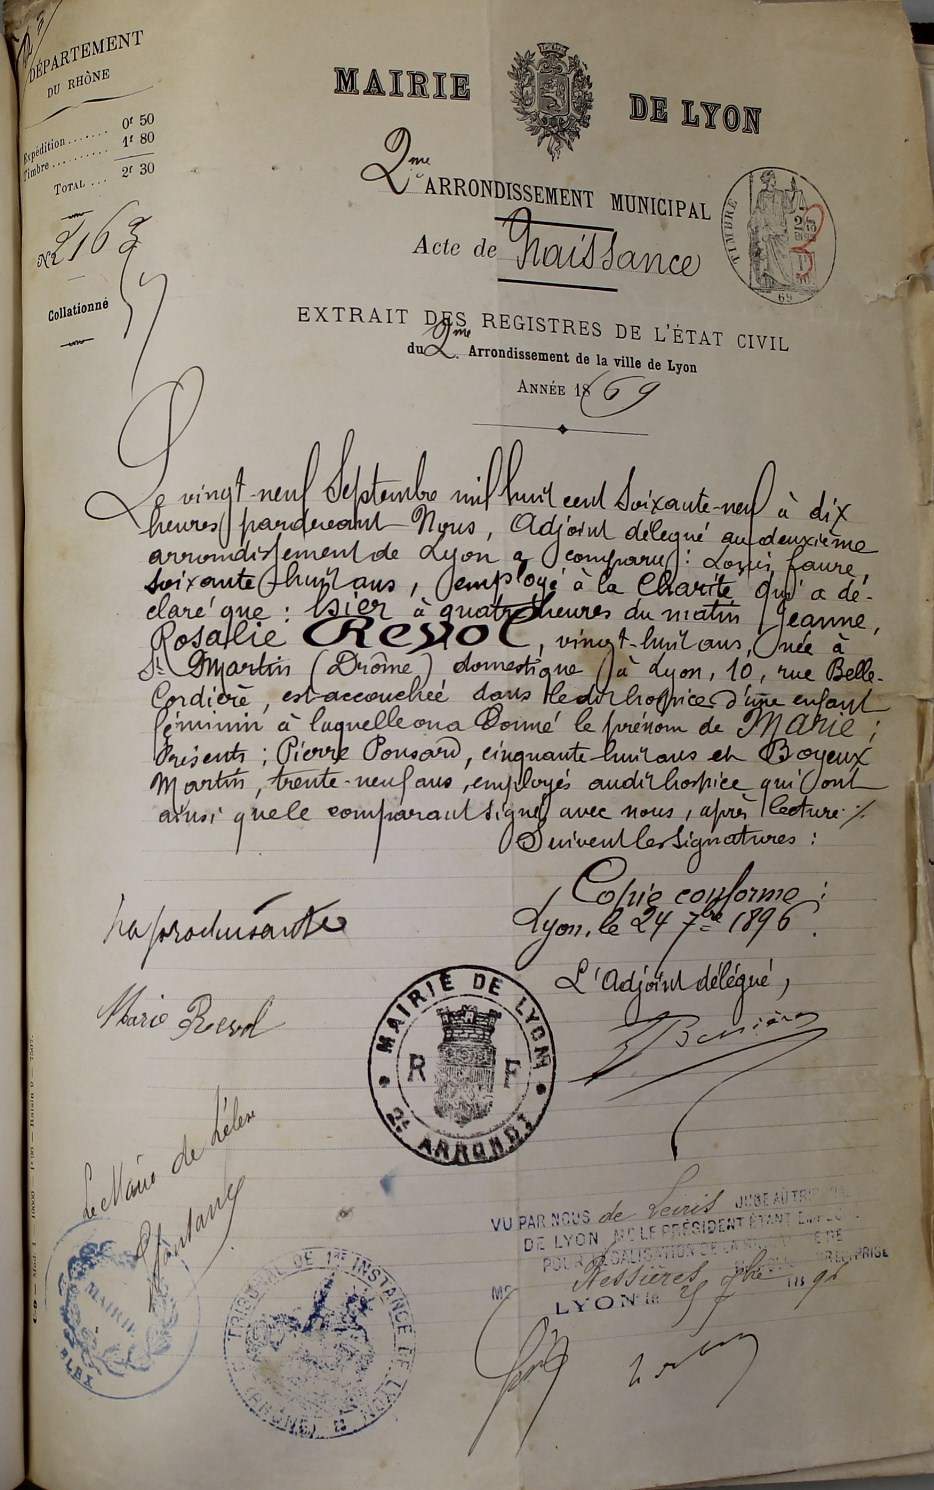 DÉPARTEMENT
DU RHÔNE
Expédition ....... 0f 50
Timbre .......... 1f 80
TOTAL ... 2f 30
No 2163
Collationné
MAIRIE DE LYON
2me ARRONDISSEMENT MUNICIPAL
Acte de Naissance
TIMBRE
69
EXTRAIT DES REGISTRES DE L'ÉTAT CIVIL
du 2me Arrondissement de la ville de Lyon
ANNÉE 1869
Le vingt-neuf Septembre mil huit cent soixante-neuf à dix
heures pardevant Nous, Adjoint délégué au deuxième
arrondissement de Lyon a comparu : Louis Faure,
soixante-huit ans, employé à la Charité qui a dé-
claré que : hier à quatre heures du matin Jeanne,
Rosalie REVOL, vingt-huit ans, née à
St Martin (Drôme) domestique à Lyon, 10, rue Belle-
Cordière, est accouchée dans ledit hospice d'une enfant
féminin à laquelle on a donné le prénom de Marie ;
Présents ; Pierre Ponsard, cinquante-huit ans et Boyeux
Martin, trente-neuf ans, employés audit hospice qui ont
ainsi que le comparant signé avec nous, après lecture ./.
Suivent les signatures :
Copie conforme :
Lyon, le 24 7bre 1896.
L'Adjoint délégué,
La produisante
Marie Revol
MAIRIE DE LYON
R F
2e ARRONDT
Le Maire de
MAIRIE
TRIBUNAL DE 1RE INSTANCE DE LYON
(RHÔNE)
VU PAR NOUS de Leiris JUGE AU TRIBUNAL
DE LYON MR LE PRÉSIDENT ÉTANT EMPÊCHÉ
POUR LÉGALISATION DE LA SIGNATURE DE
MR Bessières
LYON le 25 7bre 1896